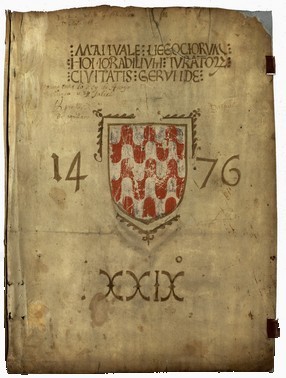 MANVALE NEGOCIORVM
HONORABILIVM IVRATORV
CIVITATIS GERVNDE
14 76
XXIX